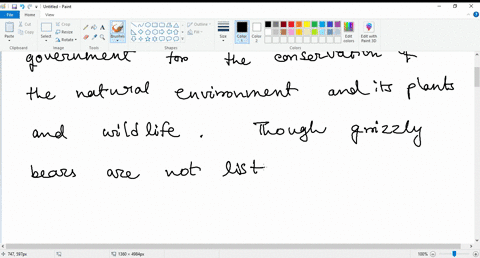 Untitled - Paint
File Home View
Paste Cut Copy Select Crop Resize Rotate Brushes Outline Fill Size Color 1 Color 2 Edit colors Edit with Paint 3D
Clipboard Image Tools Shapes Colors
government for the conservation of
the natural environment and its plants
and wildlife. Though grizzly
bears are not list
747, 597px 1380 × 4984px 100%